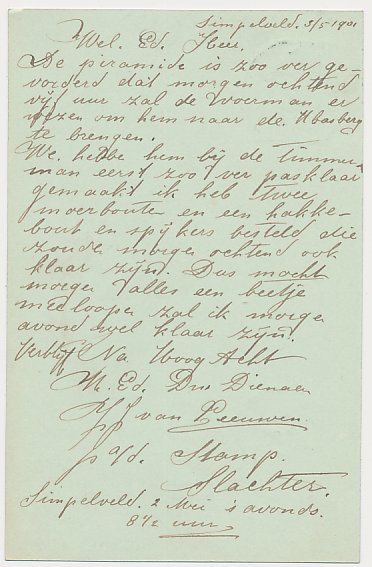 Simpelveld. 3/5 1901
Wel. Ed. Heer.
De piramide is zoo ver ge-
vorderd dat morgen ochtend
vijf uur zal de Voerman er
wezen om hem naar de Ubasberg
te brengen.
We hebbe hem bij de timmer
man eerst zoo ver pasklaar
gemaakt ik heb twee
moerbouten en een hakke-
bout en spijkers besteld die
zoude morgen ochtend ook
klaar zijn. Dus mocht
morgen alles een beetje
meeloopen zal ik morgen
avond wel klaar zijn.
Verblijf Na Hoog Acht
U. Ed. Dw Dienaar
van Leeuwen.
p a/d. Stamp.
Slachter.
Simpelveld. 2 Mei 's avonds.
8 1/2 uur